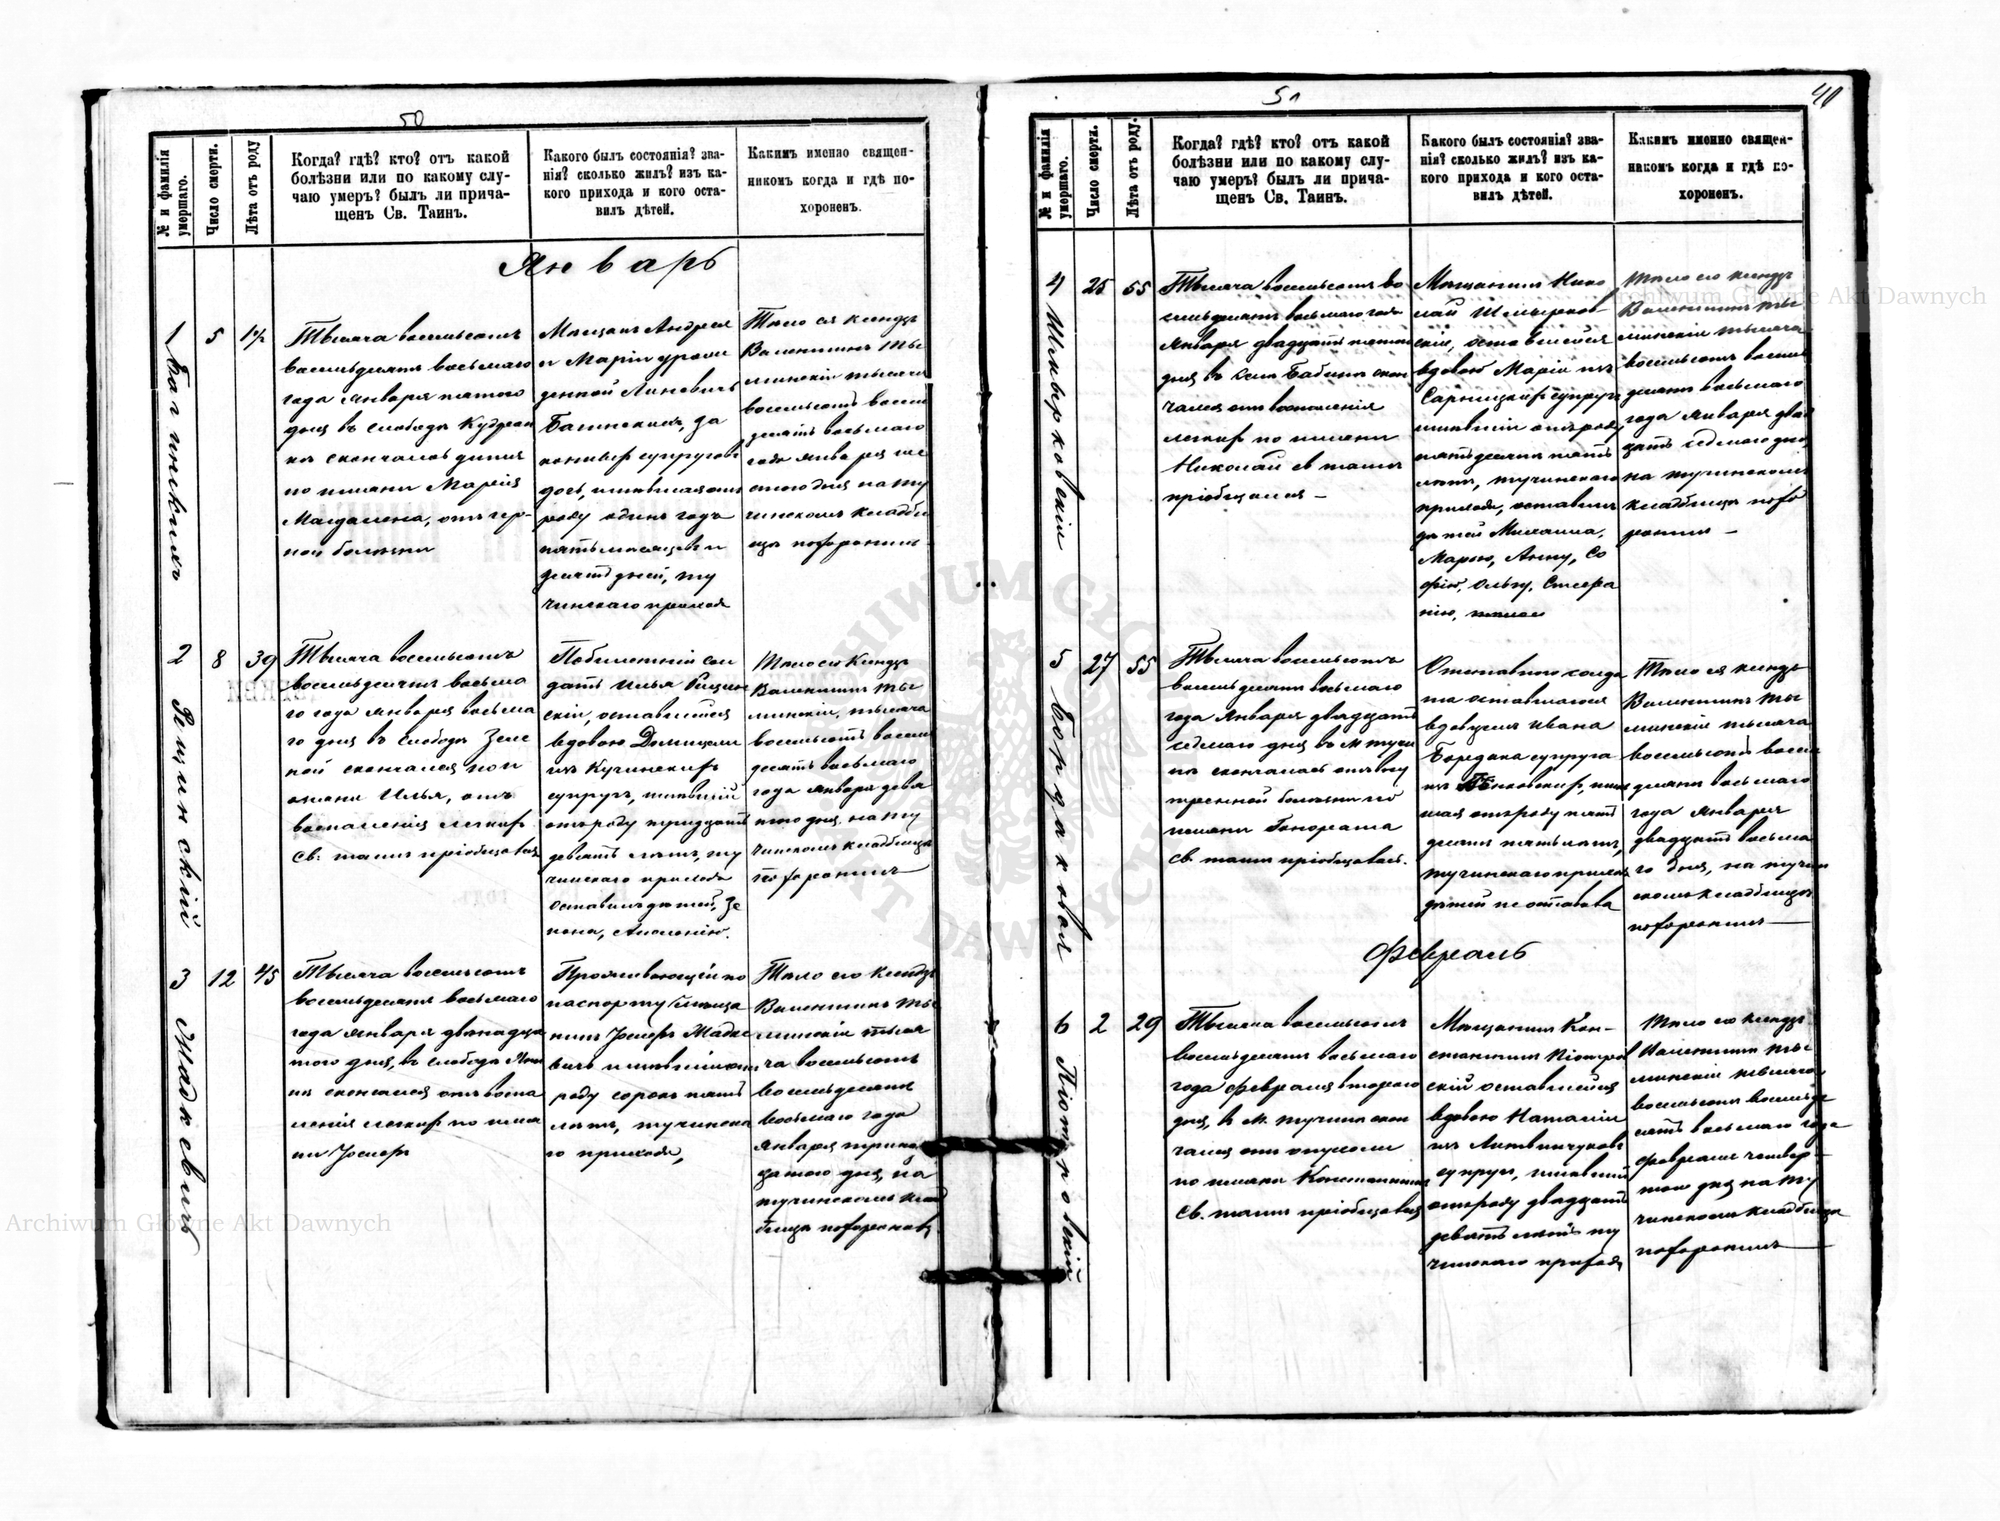 50
№ и фамилія умершаго.
Число смерти.
Лѣта отъ роду
Когда? гдѣ? кто? отъ какой
болѣзни или по какому слу-
чаю умеръ? былъ ли прича-
щенъ Св. Таинъ.
Какого былъ состоянія? зва-
нія? сколько жилъ? изъ ка-
кого прихода и кого оста-
вилъ дѣтей.
Какимъ именно священ-
никомъ когда и гдѣ по-
хороненъ.
Январь
1
5
1½
Тысяча восемьсотъ
восемьдесятъ восьмаго
года Января пятого
дня въ слободѣ
скончалась дитя
по имени Марія
Магдалена, отъ
ной болезни
Мѣщанъ Андрея
и Маріи урож
денной Линевичъ
за
конныхъ супруговъ
дочь,
роду одинъ годъ
пять месяцевъ и
десять дней, ту
чинскаго прихода
Тѣло ея ксендзъ
Валентинъ Ты
минскій тысяча
восемьсотъ восемь
десятъ восьмаго
года января ше
стого дня на ту
чинскомъ кладби
ще похоронилъ
2 Рещинскій
8
39
Тысяча восемьсотъ
восемьдесятъ восьма
го года января восьма
го дня въ слободѣ Зеле
ной скончался по и
мени Илья, отъ
воспаленія легкихъ
Св. таинъ пріобщовался
сол
датъ Илья Рещин
скій, оставившій
вдовою Домицелю
изъ Кучинскихъ
супругу, жившій
отъ роду тридцать
девять лѣтъ, ту
чинскаго прихода
оставилъ дѣтей, Зе
нона, Аполонію.
Тѣло его Ксендзъ
Валентинъ Ты
минскій, тысяча
восемьсотъ восемь
десятъ восьмаго
года января девя
того дня на ту
чинскомъ кладбище
похоронилъ
3 Мацкевичъ
12
45
Тысяча восемьсотъ
восемьдесятъ восьмаго
года января двенадца
того дня, въ слободѣ
скончался отъ воспа
ленія легкихъ по име
ни Іосифъ
Проживающій по
паспорту
нинъ Іосифъ Мацке
вичъ жившій отъ
роду сорокъ пять
лѣтъ, тучинска
го прихода,
Тѣло его ксендзъ
Валентинъ Ты
минскій тыся
ча восемьсотъ
восемьдесятъ
восьмаго года
Января
дня, на
тучинскомъ клад
бище
51
40
№ и фамилія умершаго.
Число смерти.
Лѣта отъ роду.
Когда? гдѣ? кто? отъ какой
болѣзни или по какому слу-
чаю умеръ? былъ ли прича-
щенъ Св. Таинъ.
Какого былъ состоянія? зва-
нія? сколько жилъ? изъ ка-
кого прихода и кого оста-
вилъ дѣтей.
Какимъ именно священ-
никомъ когда и гдѣ по-
хороненъ.
4 Шкмырковскій
25
55
Тысяча восемьсотъ во
семьдесятъ восьмаго года
Января двадцать пятого
дня въ селѣ Бабинѣ скон
чался отъ воспаленія
легкихъ по имени
Николай св таинъ
пріобщался –
Мѣщанинъ Нико
лай
скій, оставившій
вдовою Марію изъ
Сарницкихъ супругу
жившій отъ роду
пятьдесятъ пять
лѣтъ, тучинскаго
прихода, оставилъ
дѣтей Михаила,
Марію, Анну, Со
фію, Ольгу, Стефа
нію,
Тѣло его ксендзъ
Валентинъ Ты
минскій тысяча
восемьсотъ восемь
десятъ восьмаго
года Января два
дцать седьмого дня
на тучинскомъ
кладбище похо
ронилъ –
5 Бордаковая
27
55
Тысяча восемьсотъ
восемьдесятъ восьмаго
года Января двадцать
седьмаго дня въ м тучи
нѣ скончалась отъ вну
тренной болезни по
имени Гонората
Св таинъ пріобщовалась.
Отставного солда
та оставшаяся
вдовцемъ Ивана
Бордака супруга
изъ
шая отъ роду пять
десятъ пять лѣтъ,
тучинскаго прихода
дѣтей не оставила
Тѣло ея ксендзъ
Валентинъ Ты
минскій тысяча
восемьсотъ восемь
десятъ восьмаго
года Января
двадцать восьма
го дня, на тучин
скомъ кладбище
похоронилъ –
Февраль
6 Піотровскій
2
29
Тысяча восемьсотъ
восемьдесятъ восьмаго
года февраля второго
дня, въ м. тучинѣ скон
чался отъ опухоли
по имени Константинъ
Св. таинъ пріобщовался
Мѣщанинъ Кон-
стантинъ Піотров
скій оставившій
вдовою Наталію
изъ Литвинчуковъ
супругу, жившій
отъ роду двадцать
девять лѣтъ ту
чинскаго прихода
Тѣло его ксендзъ
Валентинъ Ты
минскій тысяча
восемьсотъ восемьде
сятъ восьмаго года
февраля четвер
того дня на ту
чинскомъ кладбище
похоронилъ –
Archiwum Główne Akt Dawnych
Archiwum Główne Akt Dawnych
ARCHIWUM GŁÓWNE AKT DAWNYCH